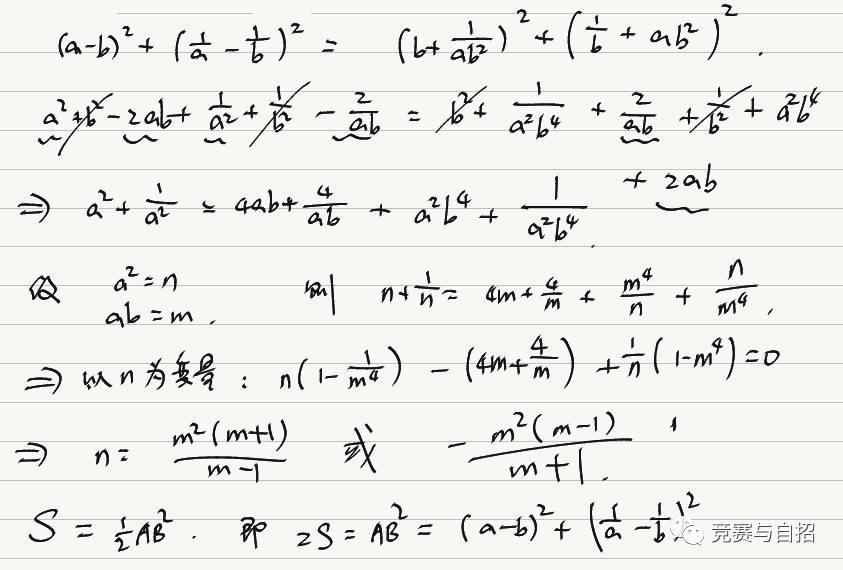 (a-b)² + (1/a - 1/b)² = (b + 1/ab²)² + (1/b + ab²)².
a² + b² - 2ab + 1/a² + 1/b² - 2/ab = b² + 1/a²b⁴ + 2/ab + 1/b² + a²b⁴
+ 2ab
⇒ a² + 1/a² = 4ab + 4/ab + a²b⁴ + 1/a²b⁴.
设 a² = n
ab = m. 则 n + 1/n = 4m + 4/m + m⁴/n + n/m⁴.
⇒ 以n为变量: n(1 - 1/m⁴) - (4m + 4/m) + 1/n(1 - m⁴) = 0
⇒ n = m²(m+1)/(m-1) 或 - m²(m-1)/(m+1).
S = 1/2 AB². 即 2S = AB² = (a-b)² + (1/a - 1/b)²
竞赛与自招